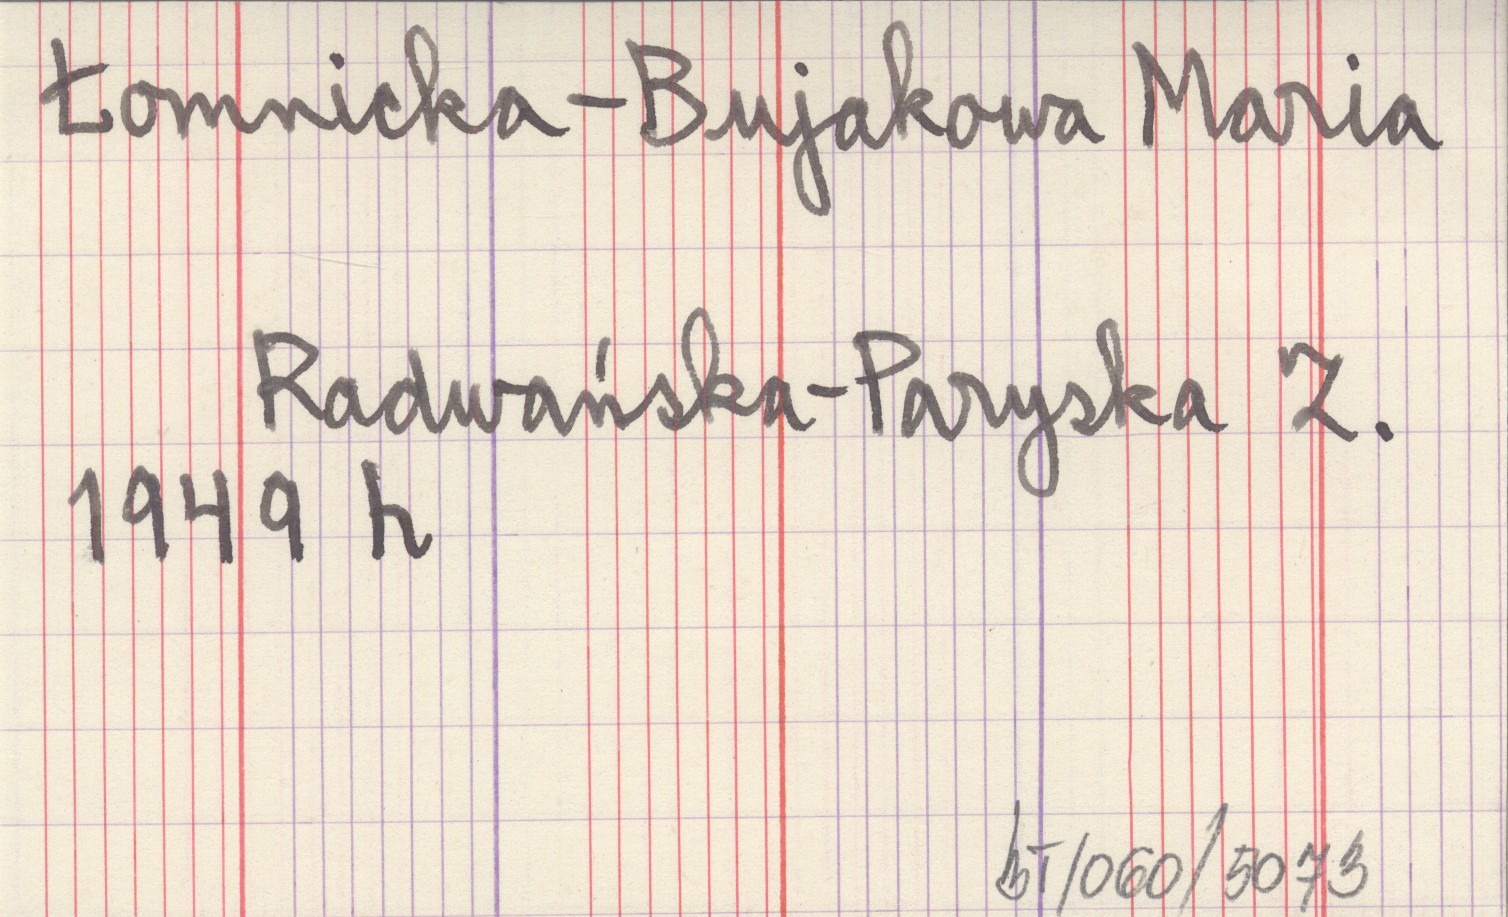 Łomnicka-Bujakowa Maria
Radwańska-Paryska Z.
1949 h
/060/5073